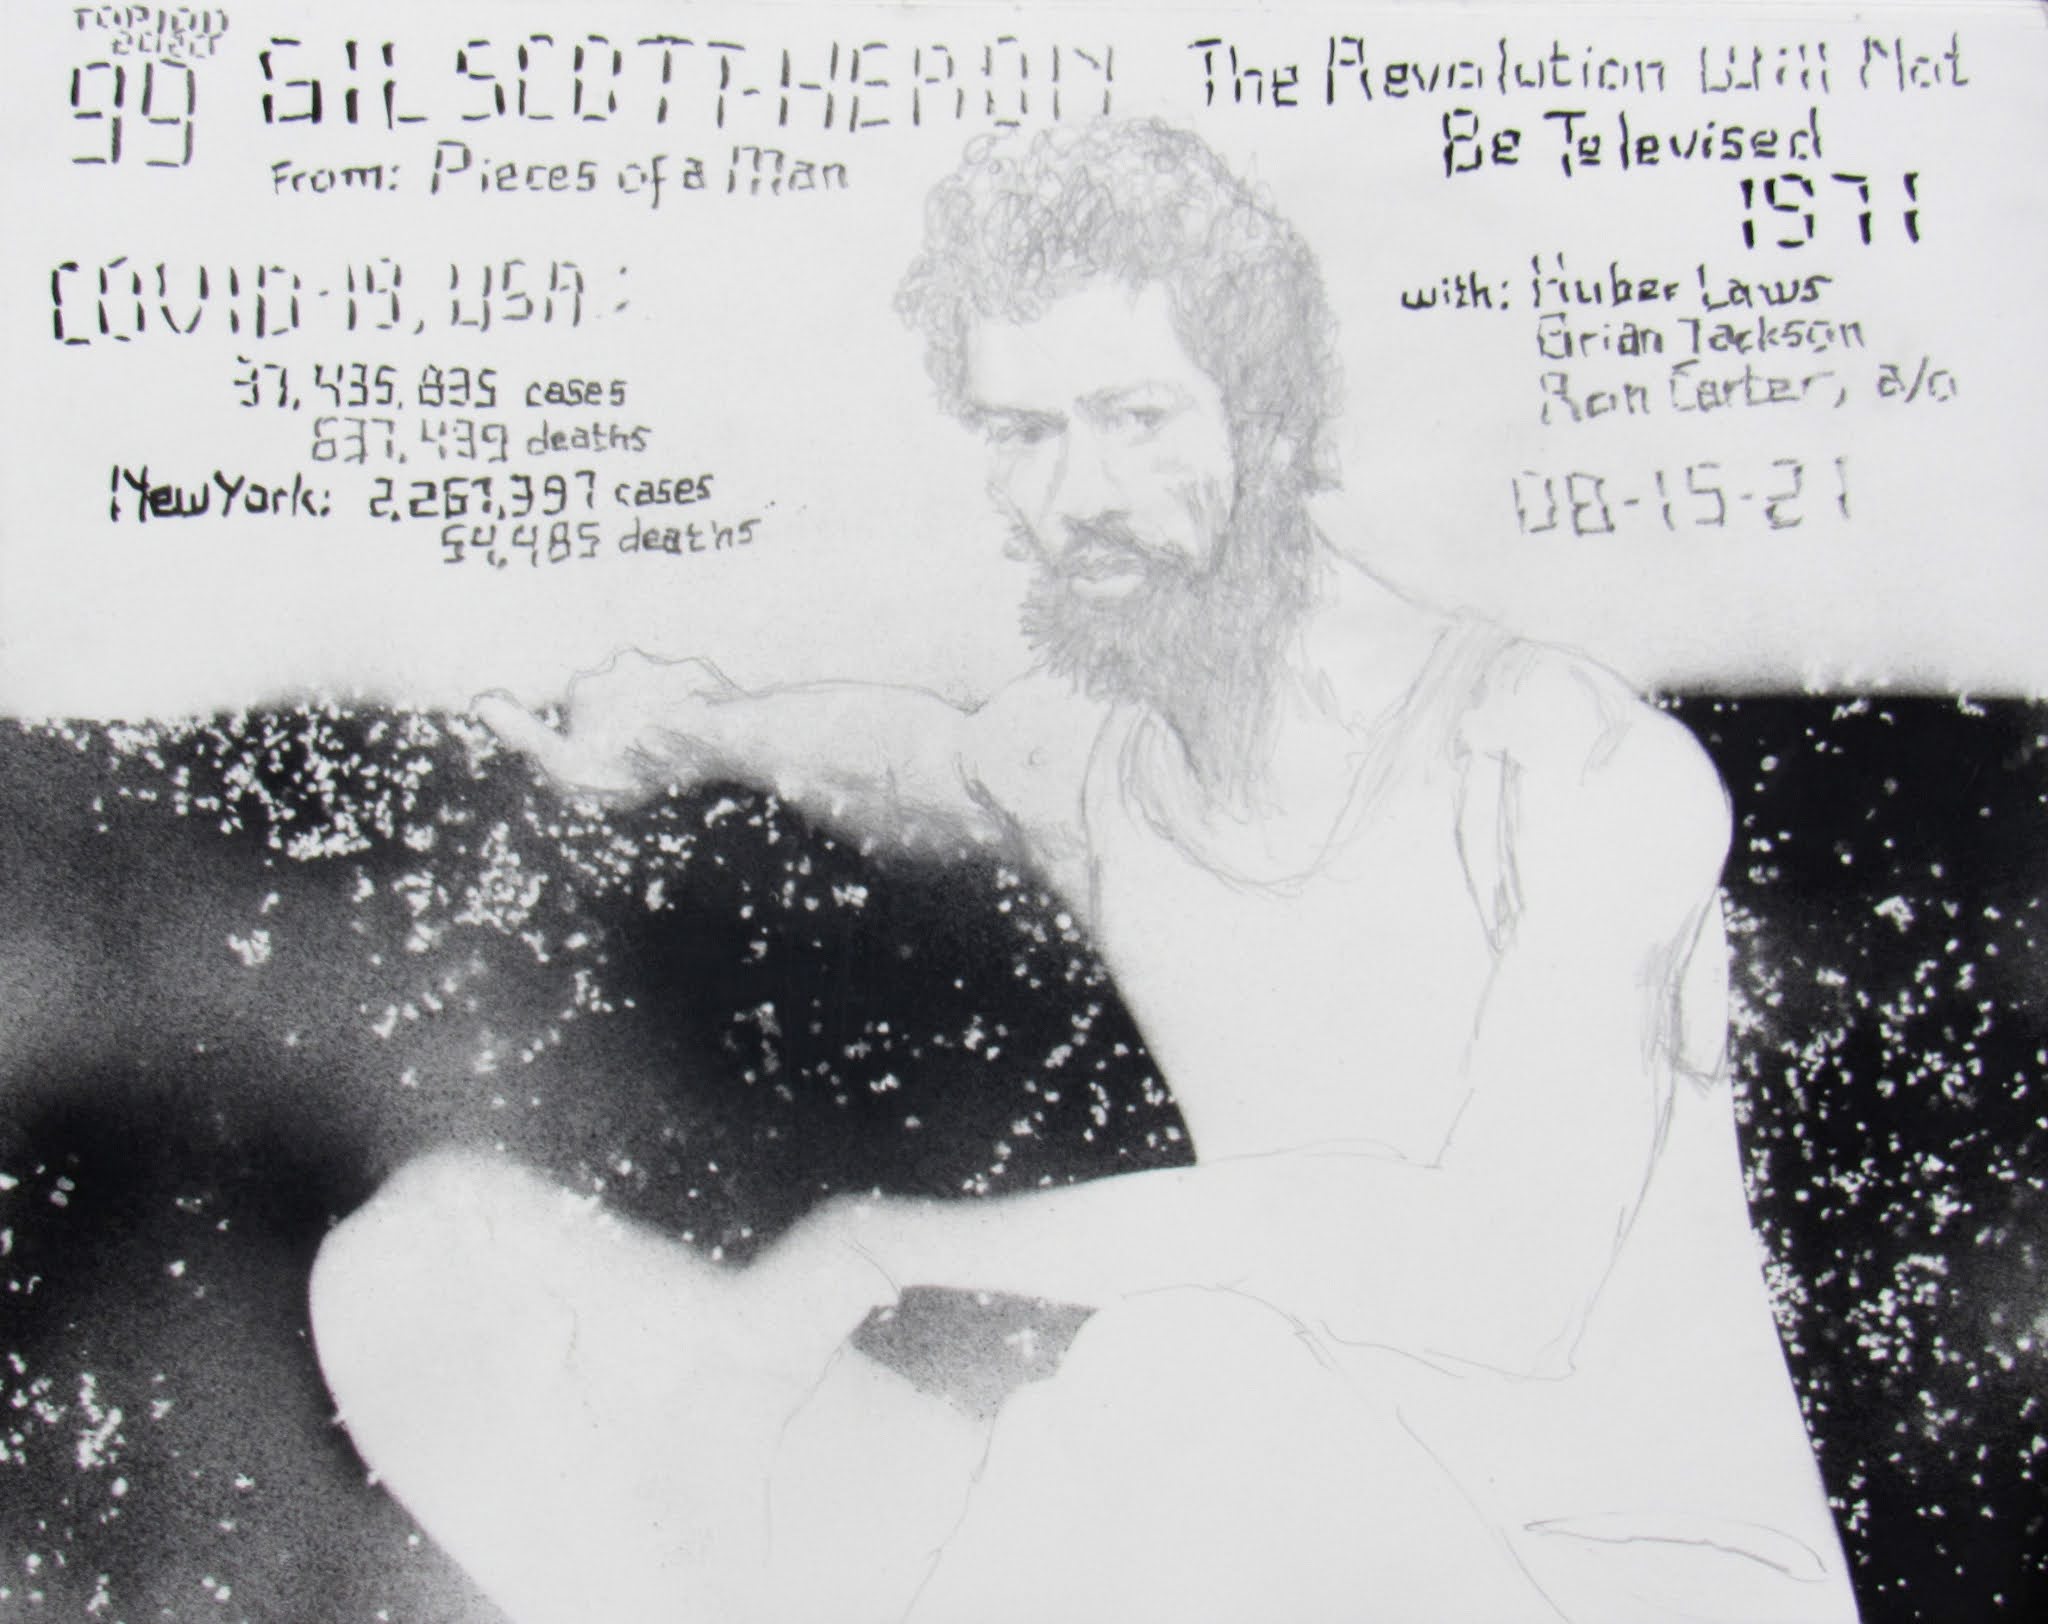 TOP 100
2020
99 GIL SCOTT-HERON
From: Pieces of a Man
The Revolution Will Not
Be Televised
1971
with: Huber Laws
Brian Jackson
Ron Carter, a/o
08-15-21
COVID-19, USA:
37,435,835 cases
637,439 deaths
New York: 2,267,397 cases
54,485 deaths